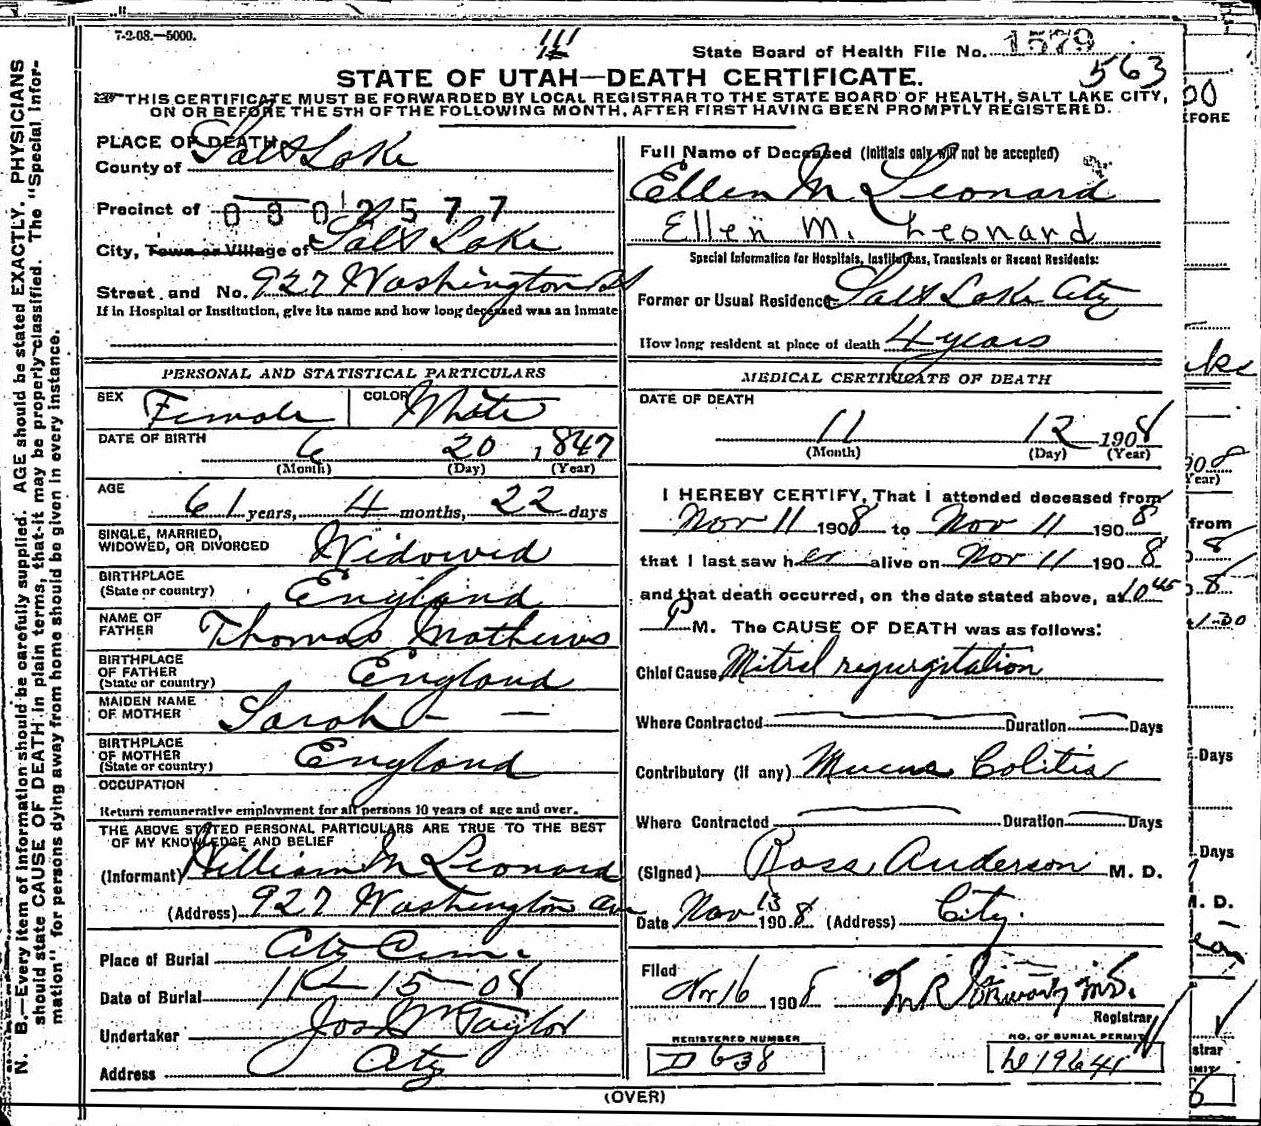 7-2-08.—5000.
State Board of Health File No. 1579
563
STATE OF UTAH—DEATH CERTIFICATE.
THIS CERTIFICATE MUST BE FORWARDED BY LOCAL REGISTRAR TO THE STATE BOARD OF HEALTH, SALT LAKE CITY,
ON OR BEFORE THE 5TH OF THE FOLLOWING MONTH, AFTER FIRST HAVING BEEN PROMPTLY REGISTERED.
N. B.—Every item of information should be carefully supplied. AGE should be stated EXACTLY. PHYSICIANS
should state CAUSE OF DEATH in plain terms, that it may be properly classified. The "Special Infor-
mation" for persons dying away from home should be given in every instance.
PLACE OF DEATH
County of Salt Lake
Precinct of 0802577
City, Town or Village of Salt Lake
Street and No. 927 Washington St
If in Hospital or Institution, give its name and how long deceased was an inmate
PERSONAL AND STATISTICAL PARTICULARS
SEX Female COLOR White
DATE OF BIRTH 6 20 , 1847
(Month) (Day) (Year)
AGE
61 years, 4 months, 22 days
SINGLE, MARRIED,
WIDOWED, OR DIVORCED Widowed
BIRTHPLACE
(State or country) England
NAME OF
FATHER Thomas Mathews
BIRTHPLACE
OF FATHER
(State or country) England
MAIDEN NAME
OF MOTHER Sarah — —
BIRTHPLACE
OF MOTHER
(State or country) England
OCCUPATION
Return remunerative employment for all persons 10 years of age and over.
THE ABOVE STATED PERSONAL PARTICULARS ARE TRUE TO THE BEST
OF MY KNOWLEDGE AND BELIEF
(Informant) William M Leonard
(Address) 927 Washington Ave
Place of Burial City Cem.
Date of Burial 11-15-08
Undertaker Jos Wm Taylor
Address City
Full Name of Deceased (Initials only will not be accepted)
Ellen M Leonard
Ellen M. Leonard
Special Information for Hospitals, Institutions, Transients or Recent Residents:
Former or Usual Residence Salt Lake City
How long resident at place of death 4 years
MEDICAL CERTIFICATE OF DEATH
DATE OF DEATH
11 12 1908
(Month) (Day) (Year)
I HEREBY CERTIFY, That I attended deceased from
Nov 11 1908 to Nov 11 1908
that I last saw her alive on Nov 11 1908
and that death occurred, on the date stated above, at 10 45
P M. The CAUSE OF DEATH was as follows:
Chief Cause Mitral regurgitation
Where Contracted Duration Days
Contributory (if any) Mucus Colitis
Where Contracted Duration Days
(Signed) Ross Anderson M. D.
Date Nov 13 1908 (Address) City.
Filed
Nov 16 1908
Registrar
REGISTERED NUMBER
D 638
NO. OF BURIAL PERMIT
(OVER)